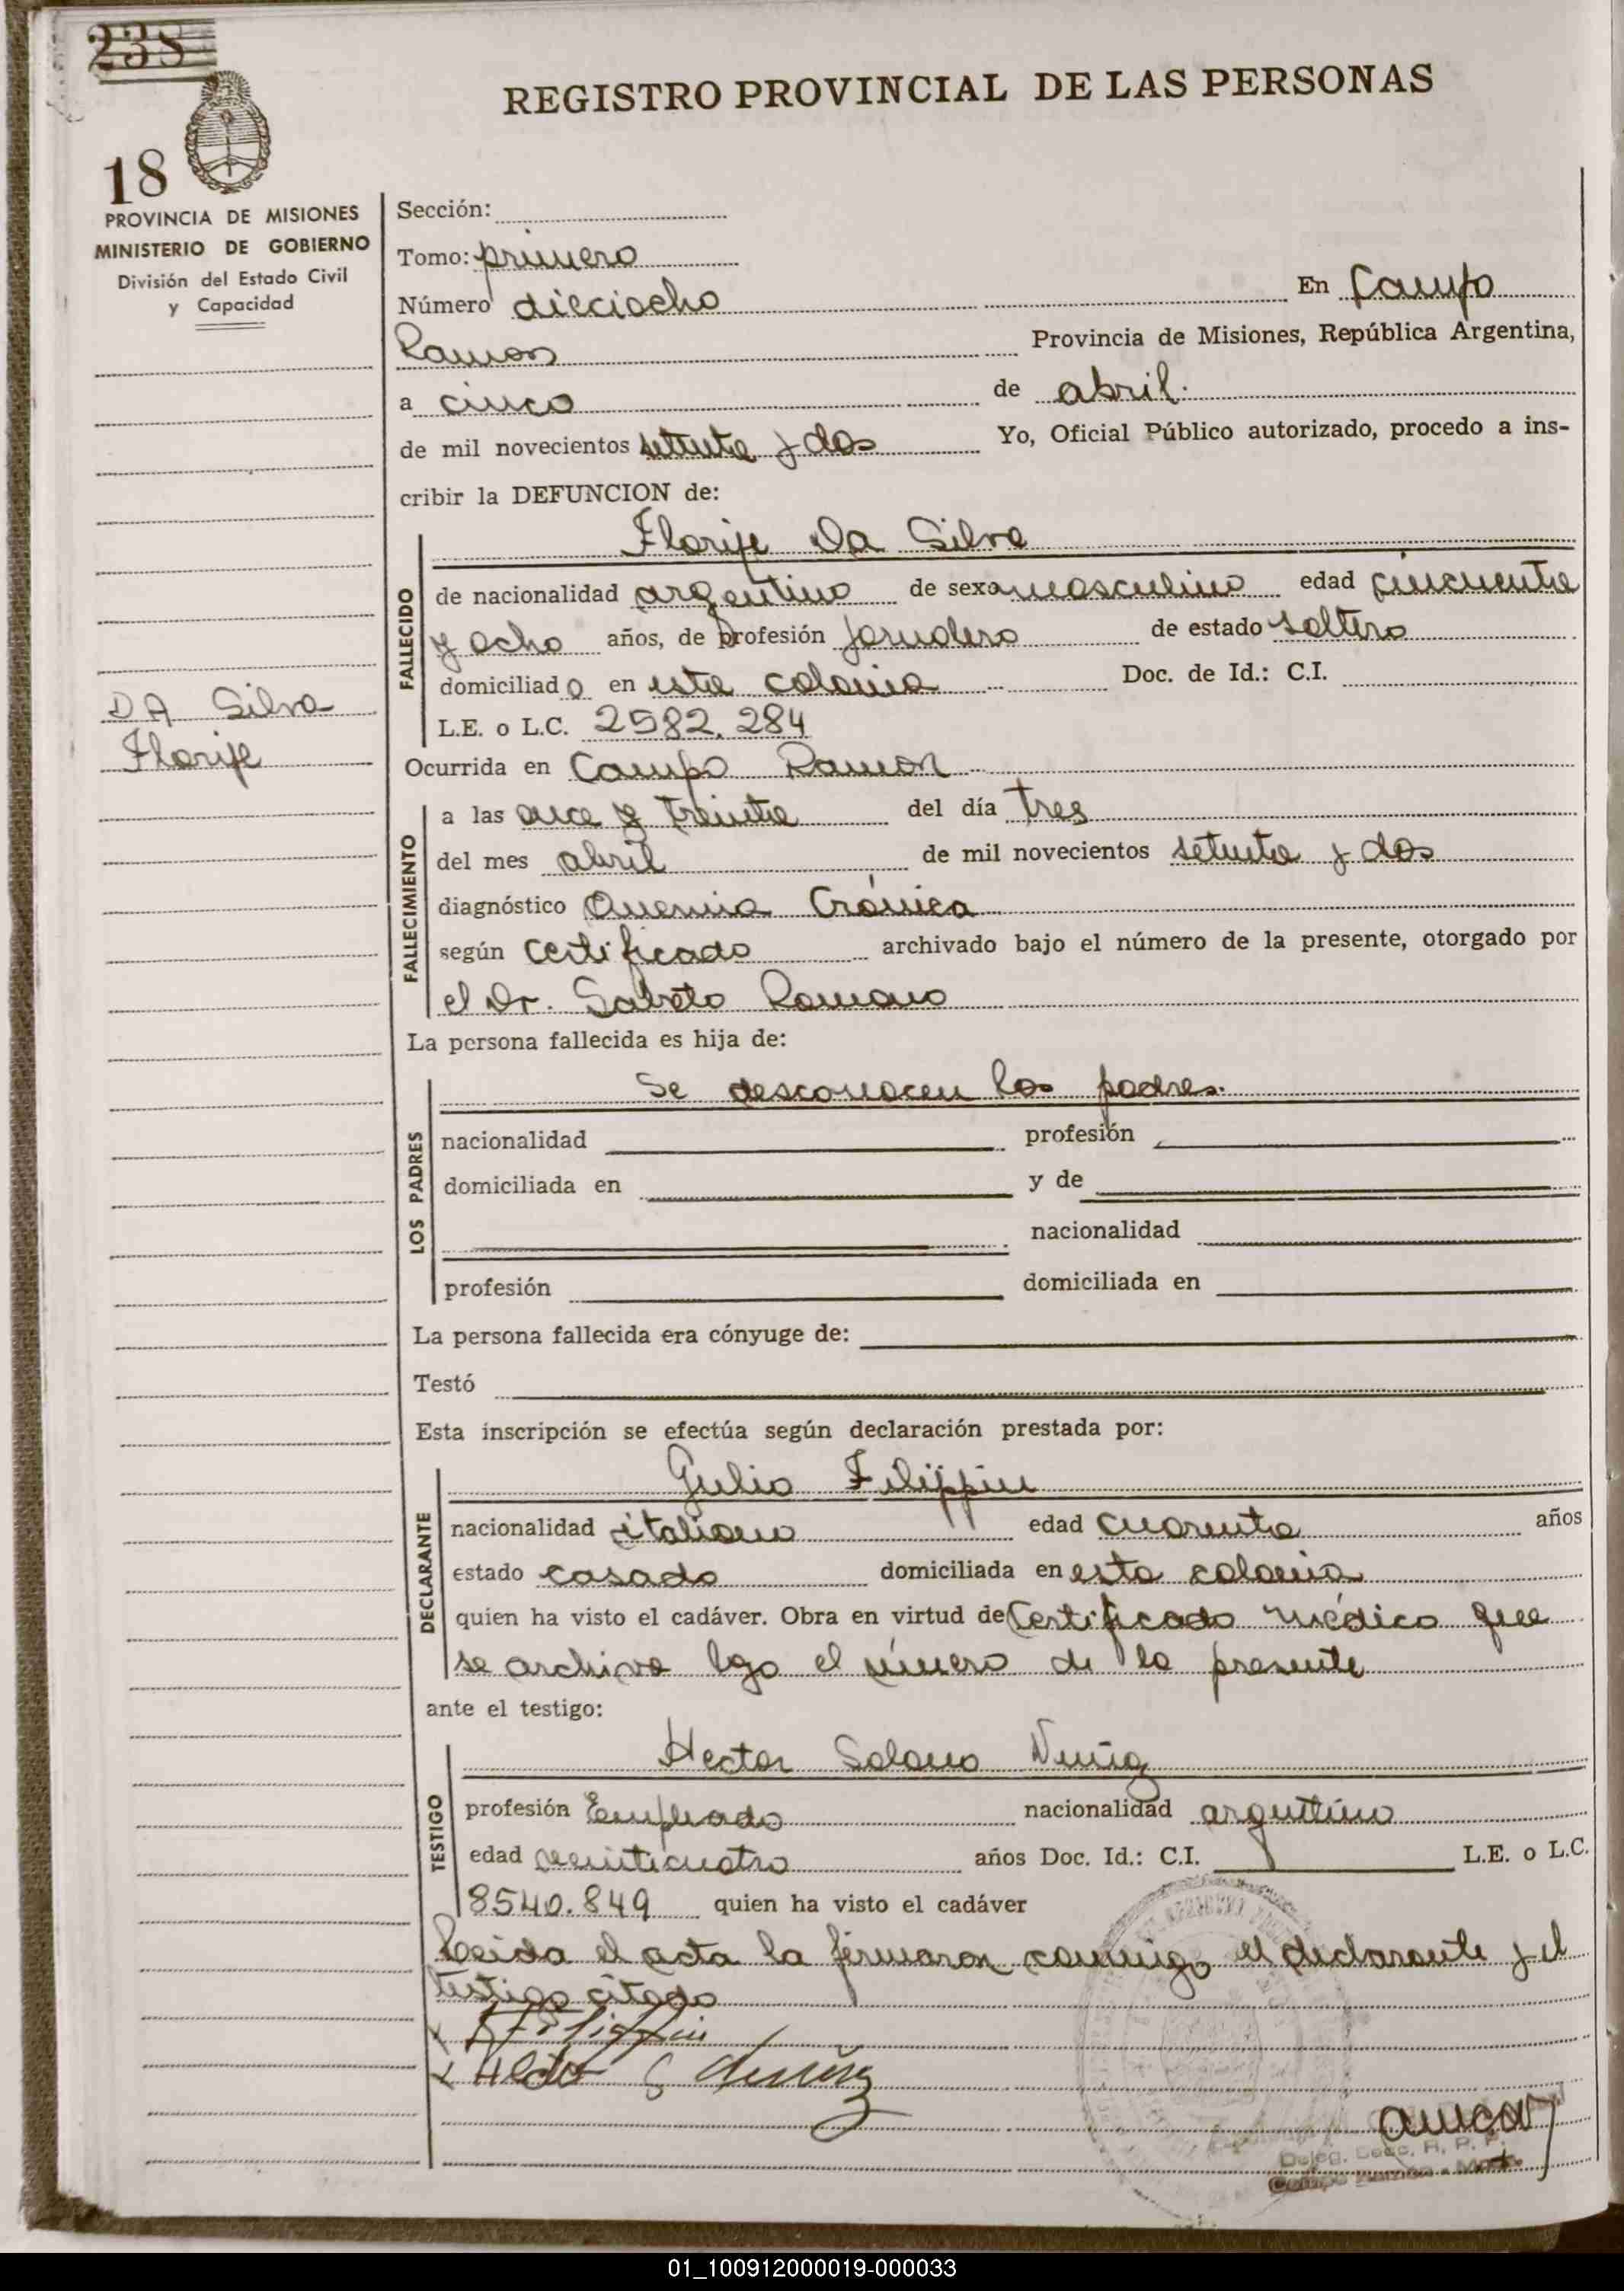 238
18
REGISTRO PROVINCIAL DE LAS PERSONAS
PROVINCIA DE MISIONES
MINISTERIO DE GOBIERNO
División del Estado Civil
y Capacidad
DA Silva
Florije
Sección:
Tomo: primero
Número dieciocho En Campo
Ramon Provincia de Misiones, República Argentina,
a cinco de abril.
de mil novecientos setenta y dos Yo, Oficial Público autorizado, procedo a ins-
cribir la DEFUNCION de:
Florije Da Silva
FALLECIDO
de nacionalidad argentino de sexo masculino edad cincuenta
y ocho años, de profesión jornalero de estado soltero
domiciliado en esta colonia Doc. de Id.: C.I.
L.E. o L.C. 2582.284
Ocurrida en Campo Ramon
FALLECIMIENTO
a las once y treinta del día tres
del mes abril de mil novecientos setenta y dos
diagnóstico Anemia Crónica
según certificado archivado bajo el número de la presente, otorgado por
el Dr. Sabato Romano
La persona fallecida es hija de:
LOS PADRES
Se desconocen los padres.
nacionalidad profesión
domiciliada en y de
nacionalidad
profesión domiciliada en
La persona fallecida era cónyuge de:
Testó
Esta inscripción se efectúa según declaración prestada por:
DECLARANTE
Gulio Filippin
nacionalidad italiano edad cuarenta años
estado casado domiciliada en esta colonia
quien ha visto el cadáver. Obra en virtud de Certificado médico que
se archiva bajo el número de la presente
ante el testigo:
TESTIGO
Hector Solano Nuñez
profesión Empleado nacionalidad argentino
edad veinticuatro años Doc. Id.: C.I. L.E. o L.C.
8540.849 quien ha visto el cadáver
Leida el acta la firmaron conmigo el declarante y el
testigo citado
Filippin
Deleg. Secc. R. P. P.
Campo Ramón - Mnes.
01_100912000019-000033